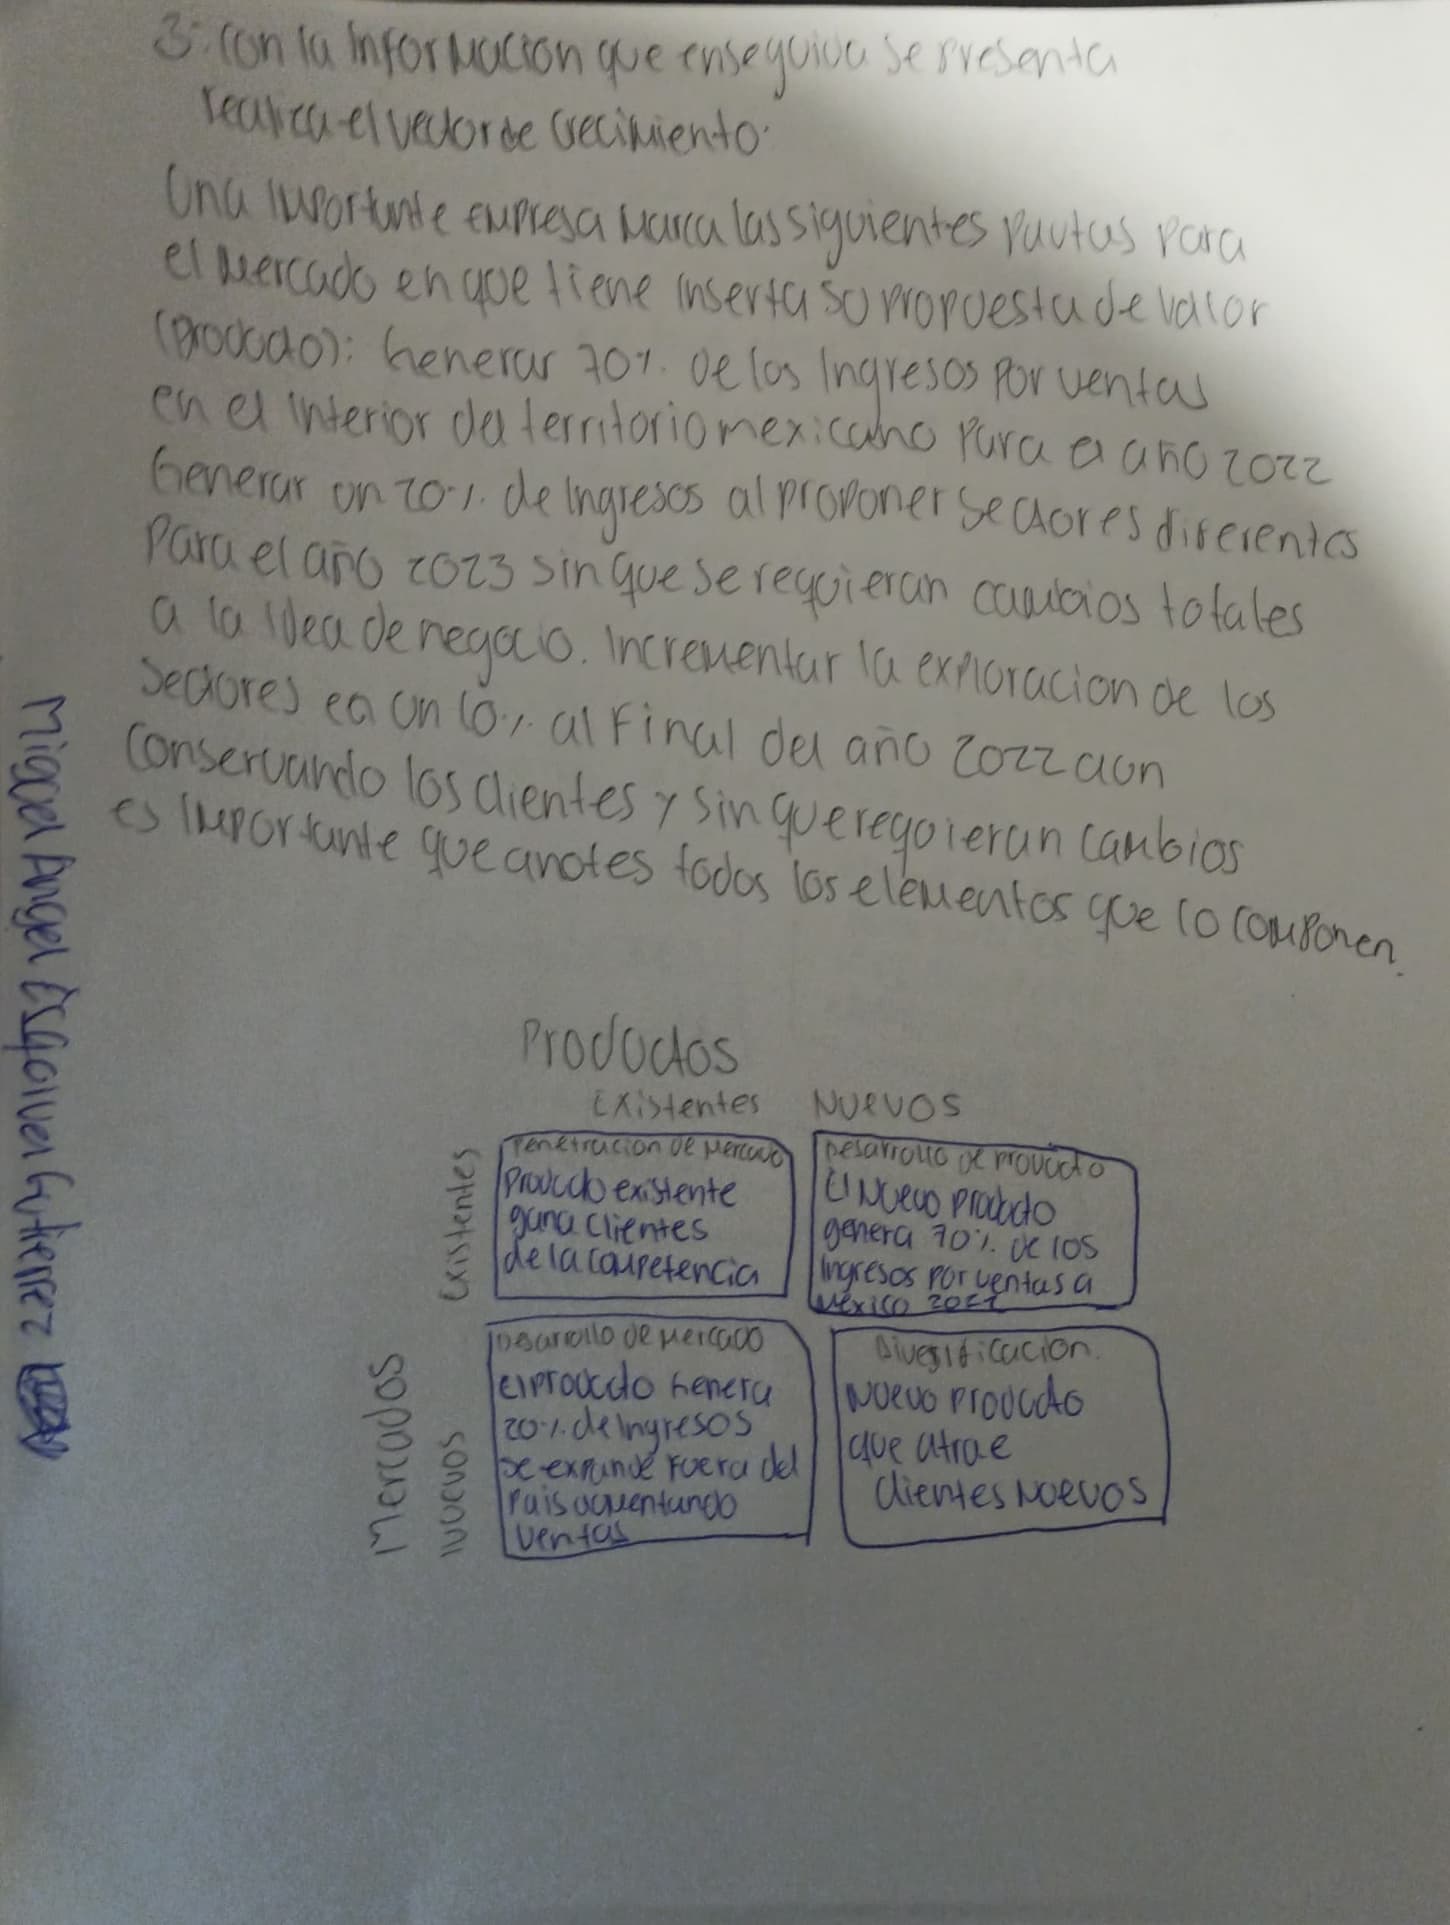 3: con la informacion que enseguida se presenta
realiza el vector de crecimiento.
Una importante empresa marca las siguientes pautas para
el mercado en que tiene inserta su propuesta de valor
(producto): Generar 70% de los ingresos por ventas
en el interior del territorio mexicano para el año 2022
Generar un 20% de ingresos al proponer sectores diferentes
para el año 2023 sin que se requieran cambios totales
a la idea de negocio. Incrementar la exploracion de los
sectores en un 10% al final del año 2022 aun
conservando los clientes y sin que requieran cambios
es importante que anotes todos los elementos que lo componen.
Miguel Angel Esquivel Gutierrez
Productos
Existentes Nuevos
Mercados
Existentes
Nuevos
Penetracion de Mercado
Producto existente
gana clientes
de la competencia
Desarrollo de producto
El Nuevo producto
genera 70% de los
ingresos por ventas a
México
Desarrollo de Mercado
el producto Genera
20% de ingresos
se expande fuera del
pais aumentando
ventas
Diversificacion.
Nuevo producto
que atrae
clientes Nuevos